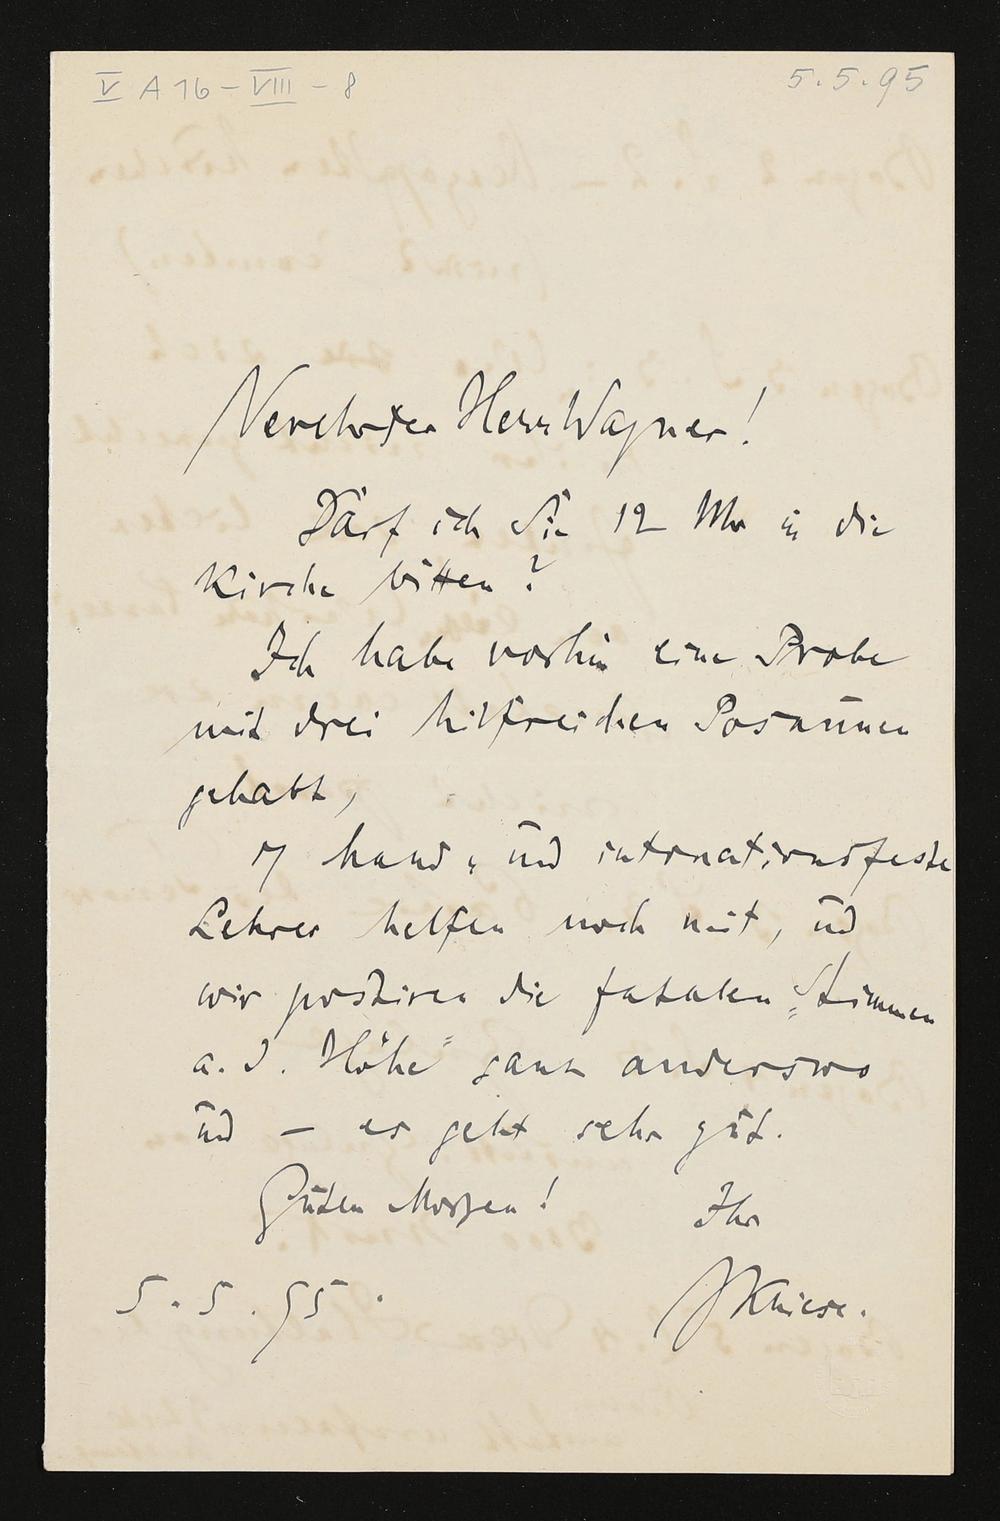 V A 16 - VIII - 8
5.5.95
Verehrter Herr Wagner!
Darf ich Sie 12 Uhr in die
Kirche bitten?
Ich habe vorhin eine Probe
mit drei hilfreichen Posaunen
gehabt,
7 hand- und intonationsfeste
Lehrer helfen noch mit, und
wir postiren die fatalen „Stimmen
a. d. Höhe" ganz anderswo
und — es geht sehr gut.
Guten Morgen! Ihr
5.5.95. JKniese.